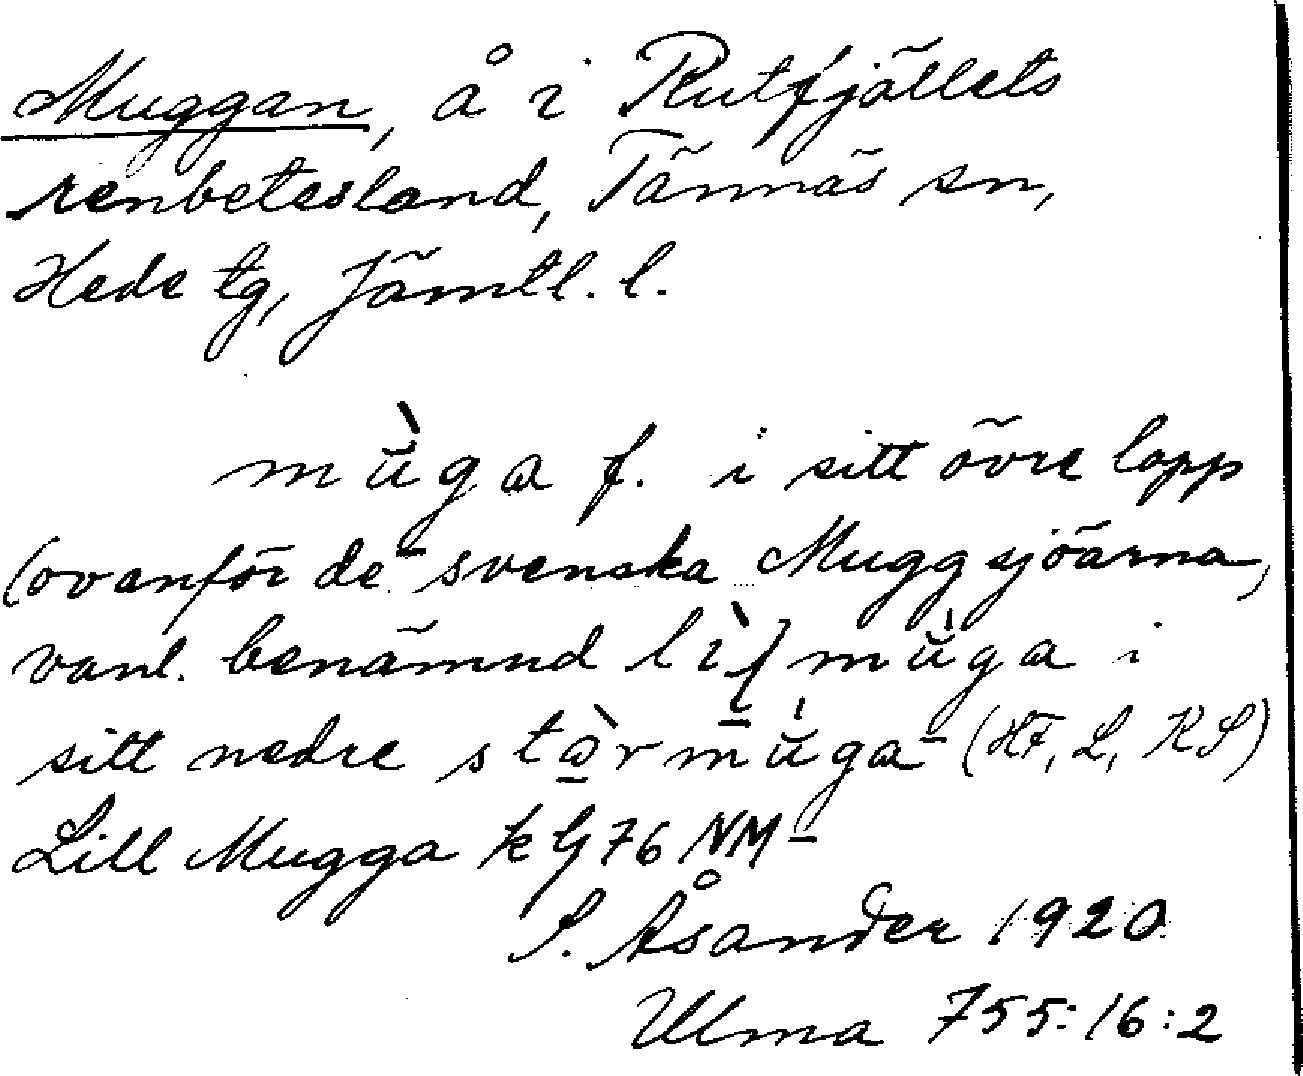 Muggan, å i Rutfjällets
renbetesland, Tännäs sn,
Hede tg, Jämtl. l.
mùga f. i sitt övre lopp
(ovanför de svenska Muggsjöarna,
vanl. benämnd mùga i
sitt nedre stàrmùga (HF, L, KS)
Lill Mugga k bl 76 NM-
S. Åsander 1920
Ulma 755:16:2